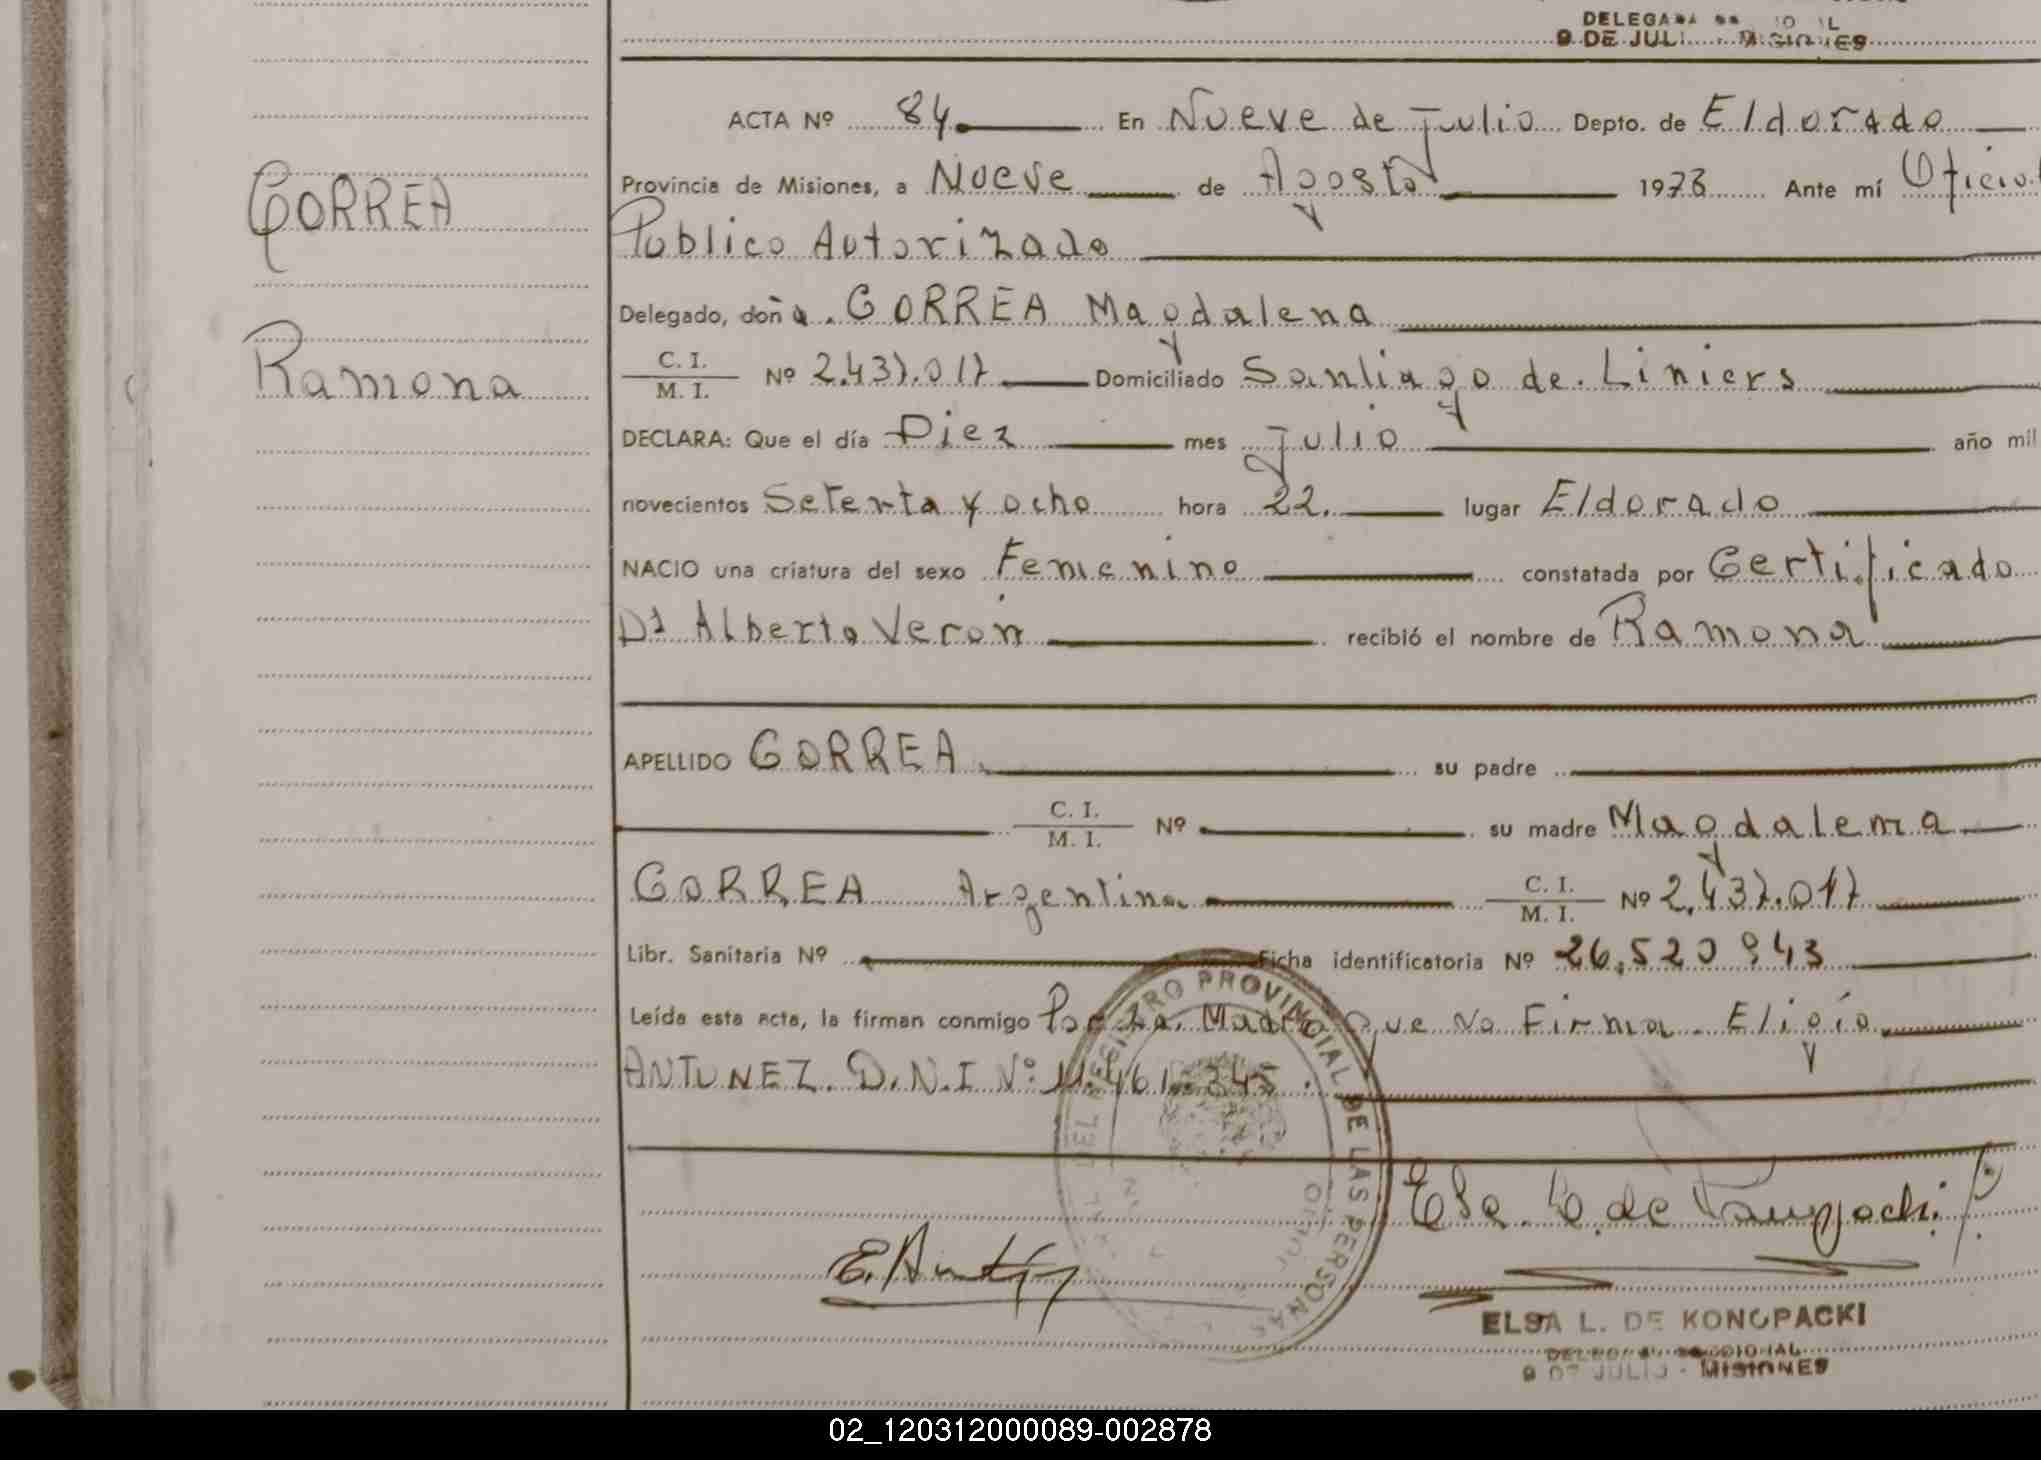 DELEGADA
9 DE JULIO - MISIONES
ACTA Nº 84. En Nueve de Julio Depto. de Eldorado
CORREA
Provincia de Misiones, a Nueve de Agosto 1978 Ante mí Oficial
Publico Autorizado
Delegado, doña. CORREA Magdalena
Ramona
C. I.
M. I. Nº 2.437.017 Domiciliado Santiago de Liniers
DECLARA: Que el día Diez mes Julio año mil
novecientos Setenta y ocho hora 22. lugar Eldorado
NACIO una criatura del sexo Femenino constatada por Certificado
Dr Alberto Veron recibió el nombre de Ramona
APELLIDO CORREA su padre
C. I.
M. I. Nº su madre Magdalena
CORREA Argentina C. I.
M. I. Nº 2.437.017
Libr. Sanitaria Nº Ficha identificatoria Nº 26.520943
Leída esta acta, la firman conmigo Por La Madre que No Firma. Eligio
ANTUNEZ. D.N.I Nº 11.461.345.
DEL REGISTRO PROVINCIAL DE LAS PERSONAS
Elsa L. de Konopacki
E. Antunez
ELSA L. DE KONOPACKI
9 DE JULIO - MISIONES
02_120312000089-002878